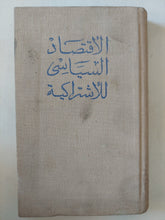 الاقتصاد
السياسى
للاشتراكية